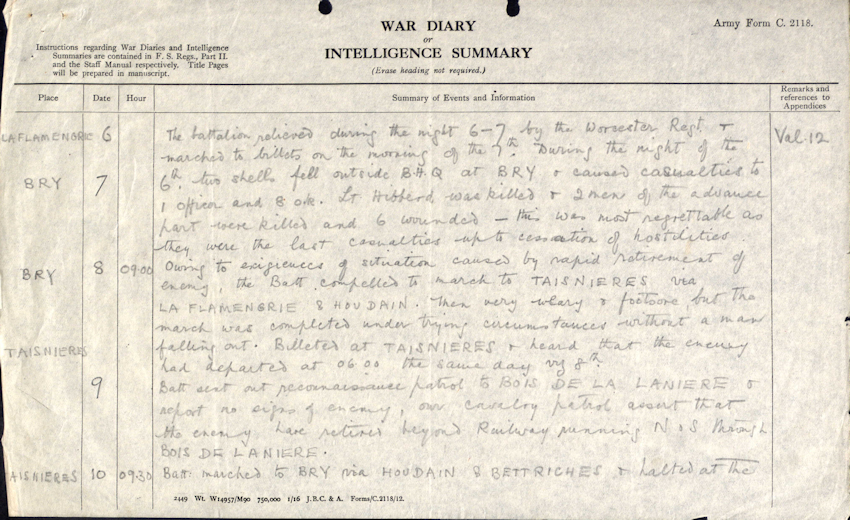 WAR DIARY
or
INTELLIGENCE SUMMARY
(Erase heading not required.)
Army Form C. 2118.
Instructions regarding War Diaries and Intelligence
Summaries are contained in F. S. Regs., Part II.
and the Staff Manual respectively. Title Pages
will be prepared in manuscript.
Place Date Hour Summary of Events and Information Remarks and references to Appendices
LA FLAMENGRIE 6 The battalion relieved during the night 6-7 by the Worcester Regt. & Val-12
marched to billets on the morning of the 7th. During the night of the
BRY 7 6th two shells fell outside B.H.Q at BRY & caused casualties to
1 officer and 8 o.R. Lt Hibberd was killed & 2 men of the advance
part were killed and 6 wounded – this was most regrettable as
they were the last casualties up to cessation of hostilities.
BRY 8 09.00 Owing to exigiences of situation caused by rapid retirement of
enemy, the Batt compelled to march to TAISNIERES via
LA FLAMENGRIE & HOUDAIN. Men very weary & footsore but the
march was completed under trying circumstances without a man
TAISNIERES falling out. Billeted at TAISNIERES & heard that the enemy
had departed at 06.00 the same day viz 8th.
9 Batt sent out reconnaissance patrol to BOIS DE LA LANIERE &
report no signs of enemy, our cavalry patrol assert that
the enemy have retired beyond Railway running N & S through
BOIS DE LANIERE.
AISNIERES 10 09.30 Batt: marched to BRY via HOUDAIN & BETTRICHES & halted at the
2449 Wt. W14957/M90 750,000 1/16 J.B.C. & A. Forms/C.2118/12.